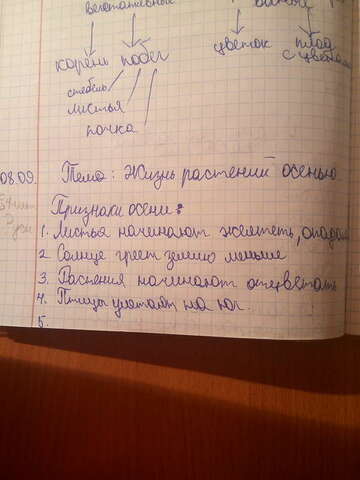 вегетативные
корень побег цветок плод
стебель с цветком
листья
почка
08.09. Тема: Жизнь растений осенью.
Признаки осени:
1. Листья начинают желтеть,
2. Солнце греет землю меньше
3. Растения начинают отцветать
4. Птицы улетают на юг.
5.